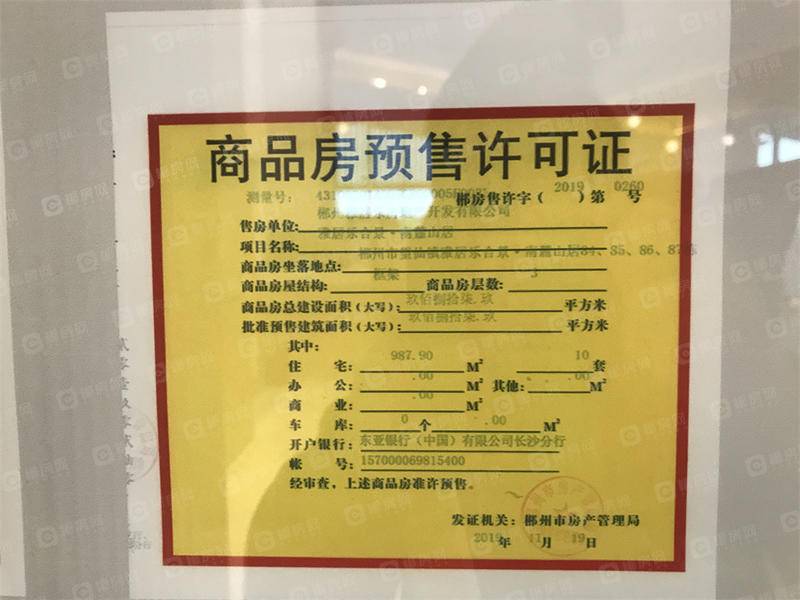 商品房预售许可证
测量号:
郴房售许字(2019)第0260号
售房单位: 开发有限公司
项目名称: 雅居乐合景·南麓山居
商品房坐落地点: 雅居乐合景·南麓山居84、85、86、87栋
商品房屋结构: 框架 商品房层数: 3
商品房总建设面积(大写): 玖佰捌拾柒.玖 平方米
批准预售建筑面积(大写): 玖佰捌拾柒.玖 平方米
其中:
住 宅: 987.90 M² 10 套
办 公: .00 M² 其他: .00 M²
商 业: .00 M²
车 库: 0 个 .00 M²
开户银行: 东亚银行(中国)有限公司长沙分行
帐 号: 157000069815400
经审查,上述商品房准许预售。
发证机关: 郴州市房产管理局
2019年11月19日